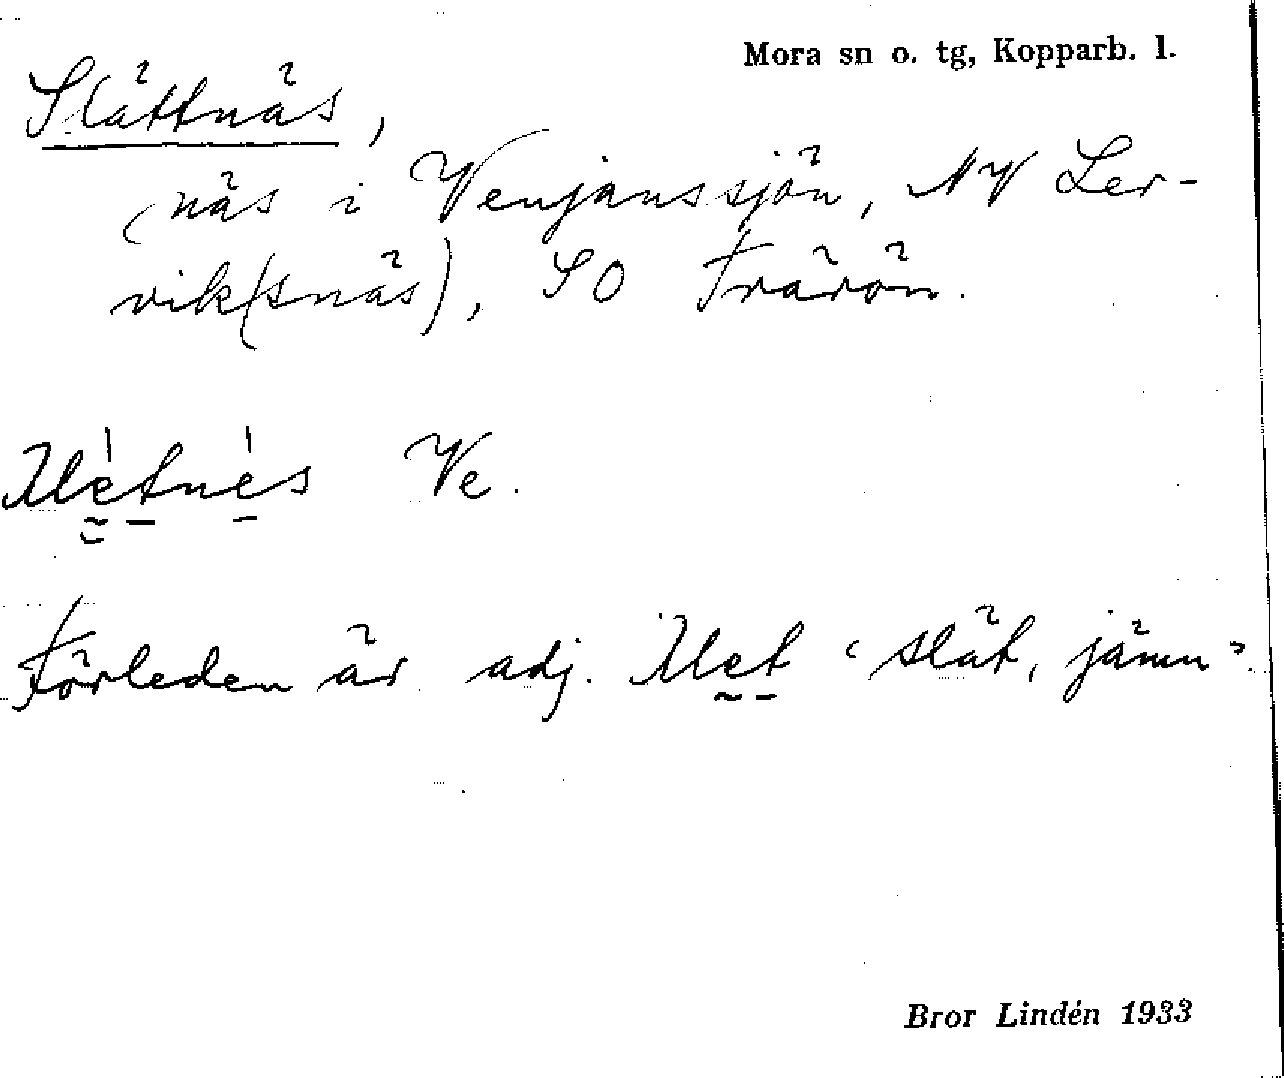 Mora sn o. tg, Kopparb. l.
Slättnäs,
(näs i Venjanssjön, NV Ler-
vik(snäs), SO Frärön.
Ve.
Förleden är adj. "slät, jämn".
Bror Lindén 1933